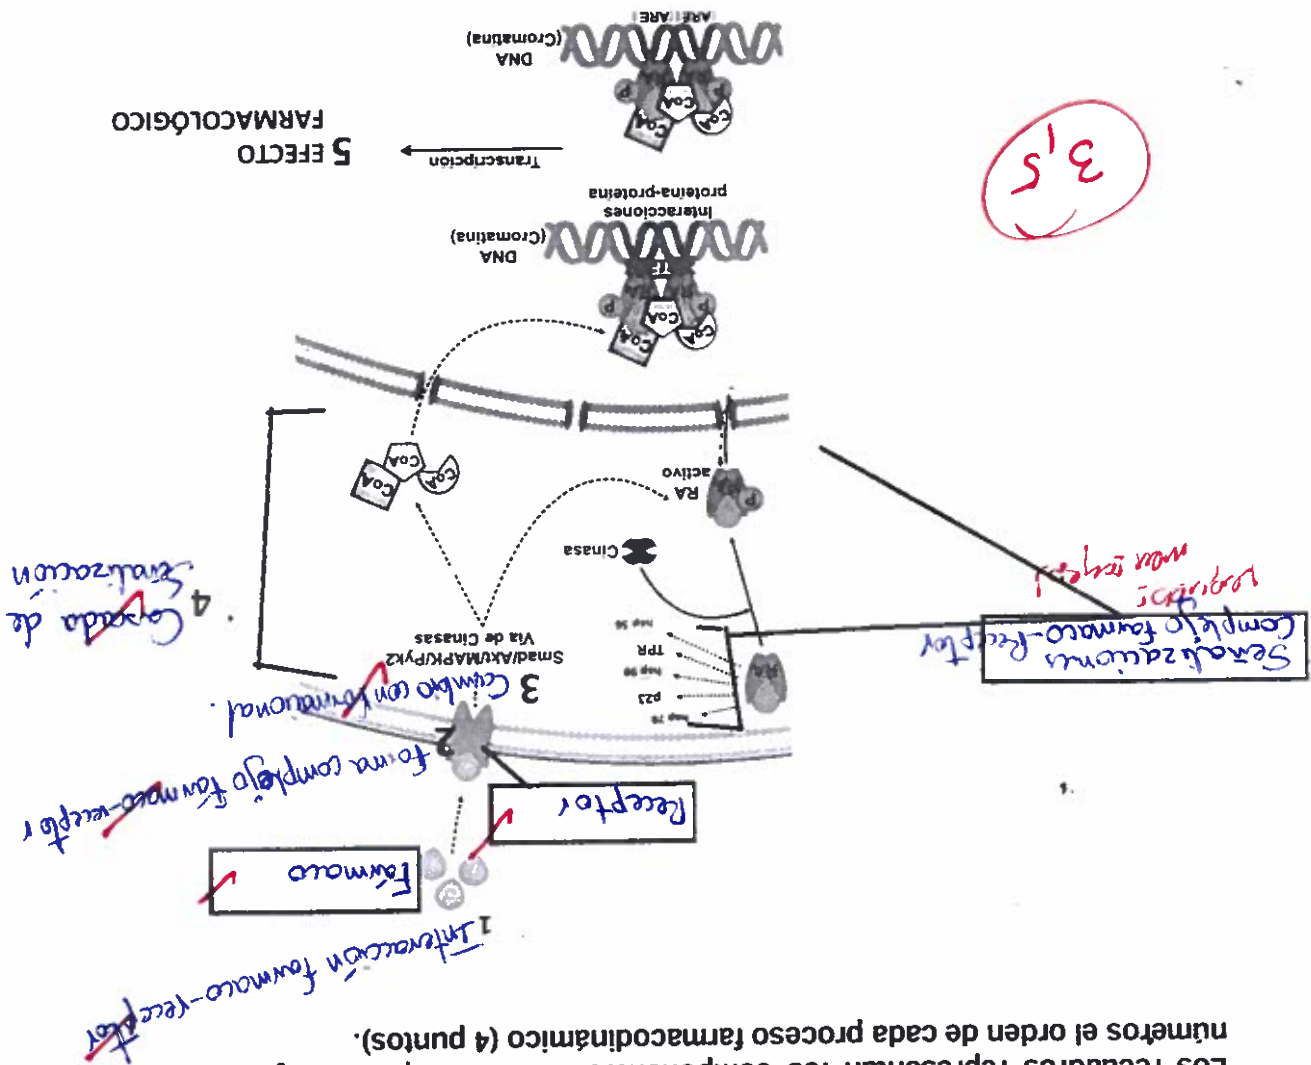 Los recuadros representan los
números el orden de cada proceso farmacodinámico (4 puntos).
1
Interacción farmaco-receptor
Fármaco
Receptor
2
forma complejo fármaco-receptor
3 Cambio conformacional.
Smad/Akt/MAPK/Pyk2
Vía de Cinasas
hsp 70
p23
hsp 90
TPR
hsp 56
RA
Señalizaciones
Complejo farmaco-receptor
4 Cascada de
Señalización
Cinasa
RA
activo
P
CoA
CoA
CoA
CoA
CoA
CoA
P
P
TF
DNA
(Cromatina)
Interacciones
proteína-proteína
3,5
Transcripción
5 EFECTO
FARMACOLÓGICO
CoA
CoA
CoA
P
P
DNA
(Cromatina)
ARE ARE